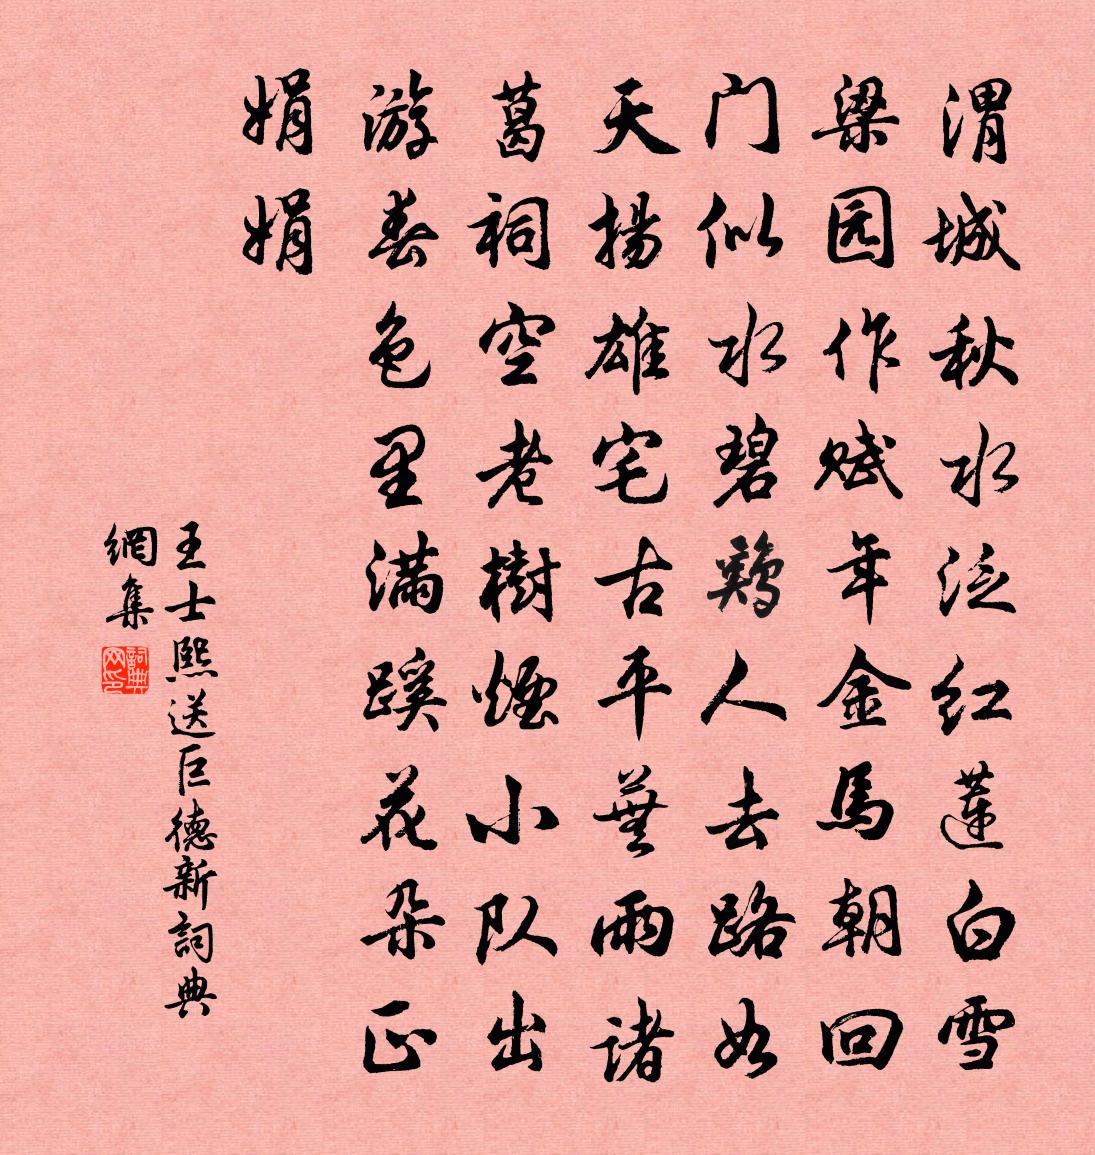 渭城秋水泛红莲白雪
梁园作赋年金馬朝回
门似水碧鷄人去路如
天揚雄宅古平蕪雨诸
葛祠空老樹煙小队出
游春色里满蹊花朵正
娟娟
王士熙送巨德新詞典
網集
詞典网印